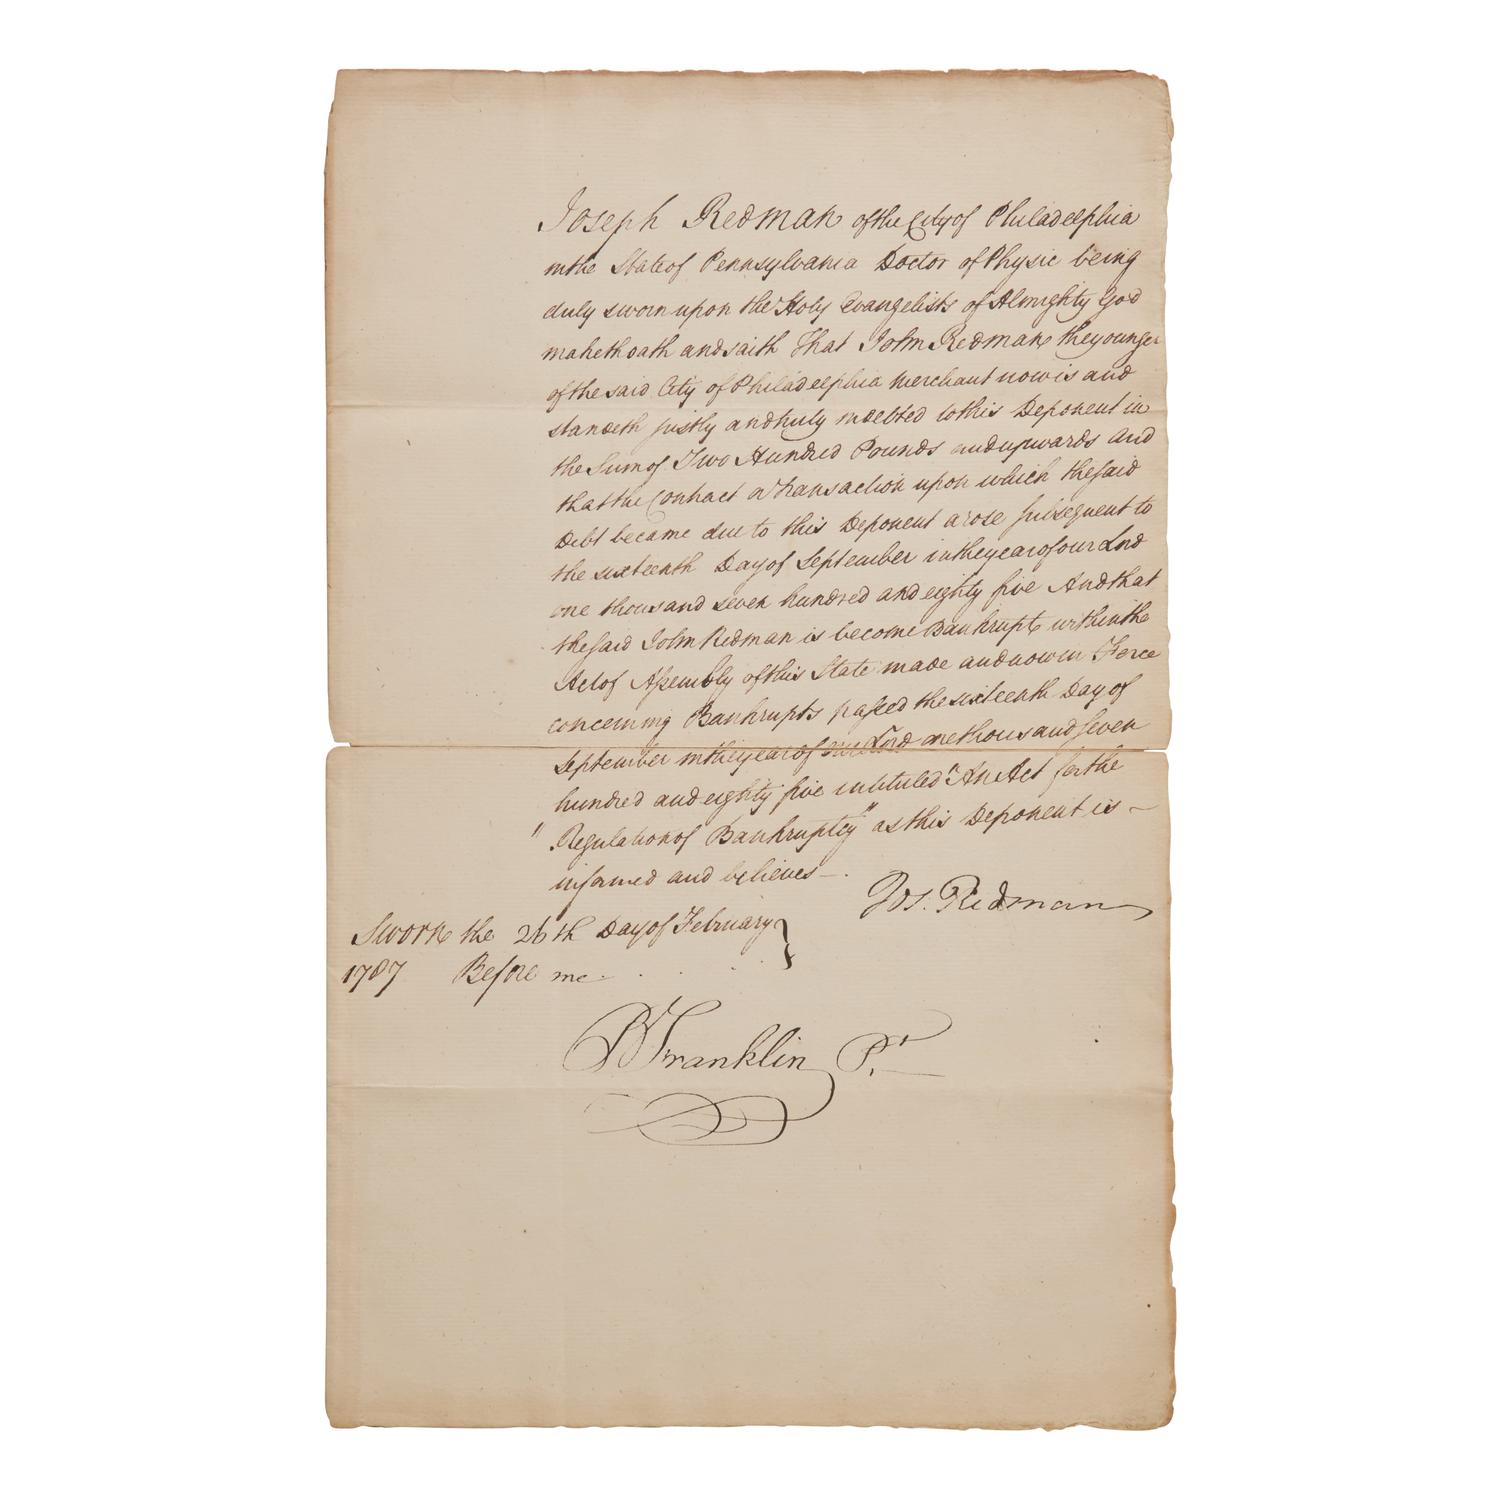 Joseph Redman of the City of Philadelphia
in the State of Pennsylvania Doctor of Physic being
duly sworn upon the Holy Evangelists of Almighty God
maketh oath and saith That John Redman the younger
of the said City of Philadelphia Merchant now is and
standeth justly and truly indebted to this Deponent in
the Sum of Two Hundred Pounds and upwards and
that the Contract or Transaction upon which the said
Debt became due to this Deponent arose subsequent to
the sixteenth Day of September in the year of our Lord
one thousand seven hundred and eighty five And that
the said John Redman is become Bankrupt within the
Act of Assembly of this State made and now in Force
concerning Bankrupts passed the sixteenth Day of
September in the year of our Lord one thousand seven
hundred and eighty five intituled "An Act for the
" Regulation of Bankruptcy" as this Deponent is –
informed and believes –.
Jos. Redman
Sworn the 26th Day of February }
1787 Before me . . . .
B Franklin Pt.